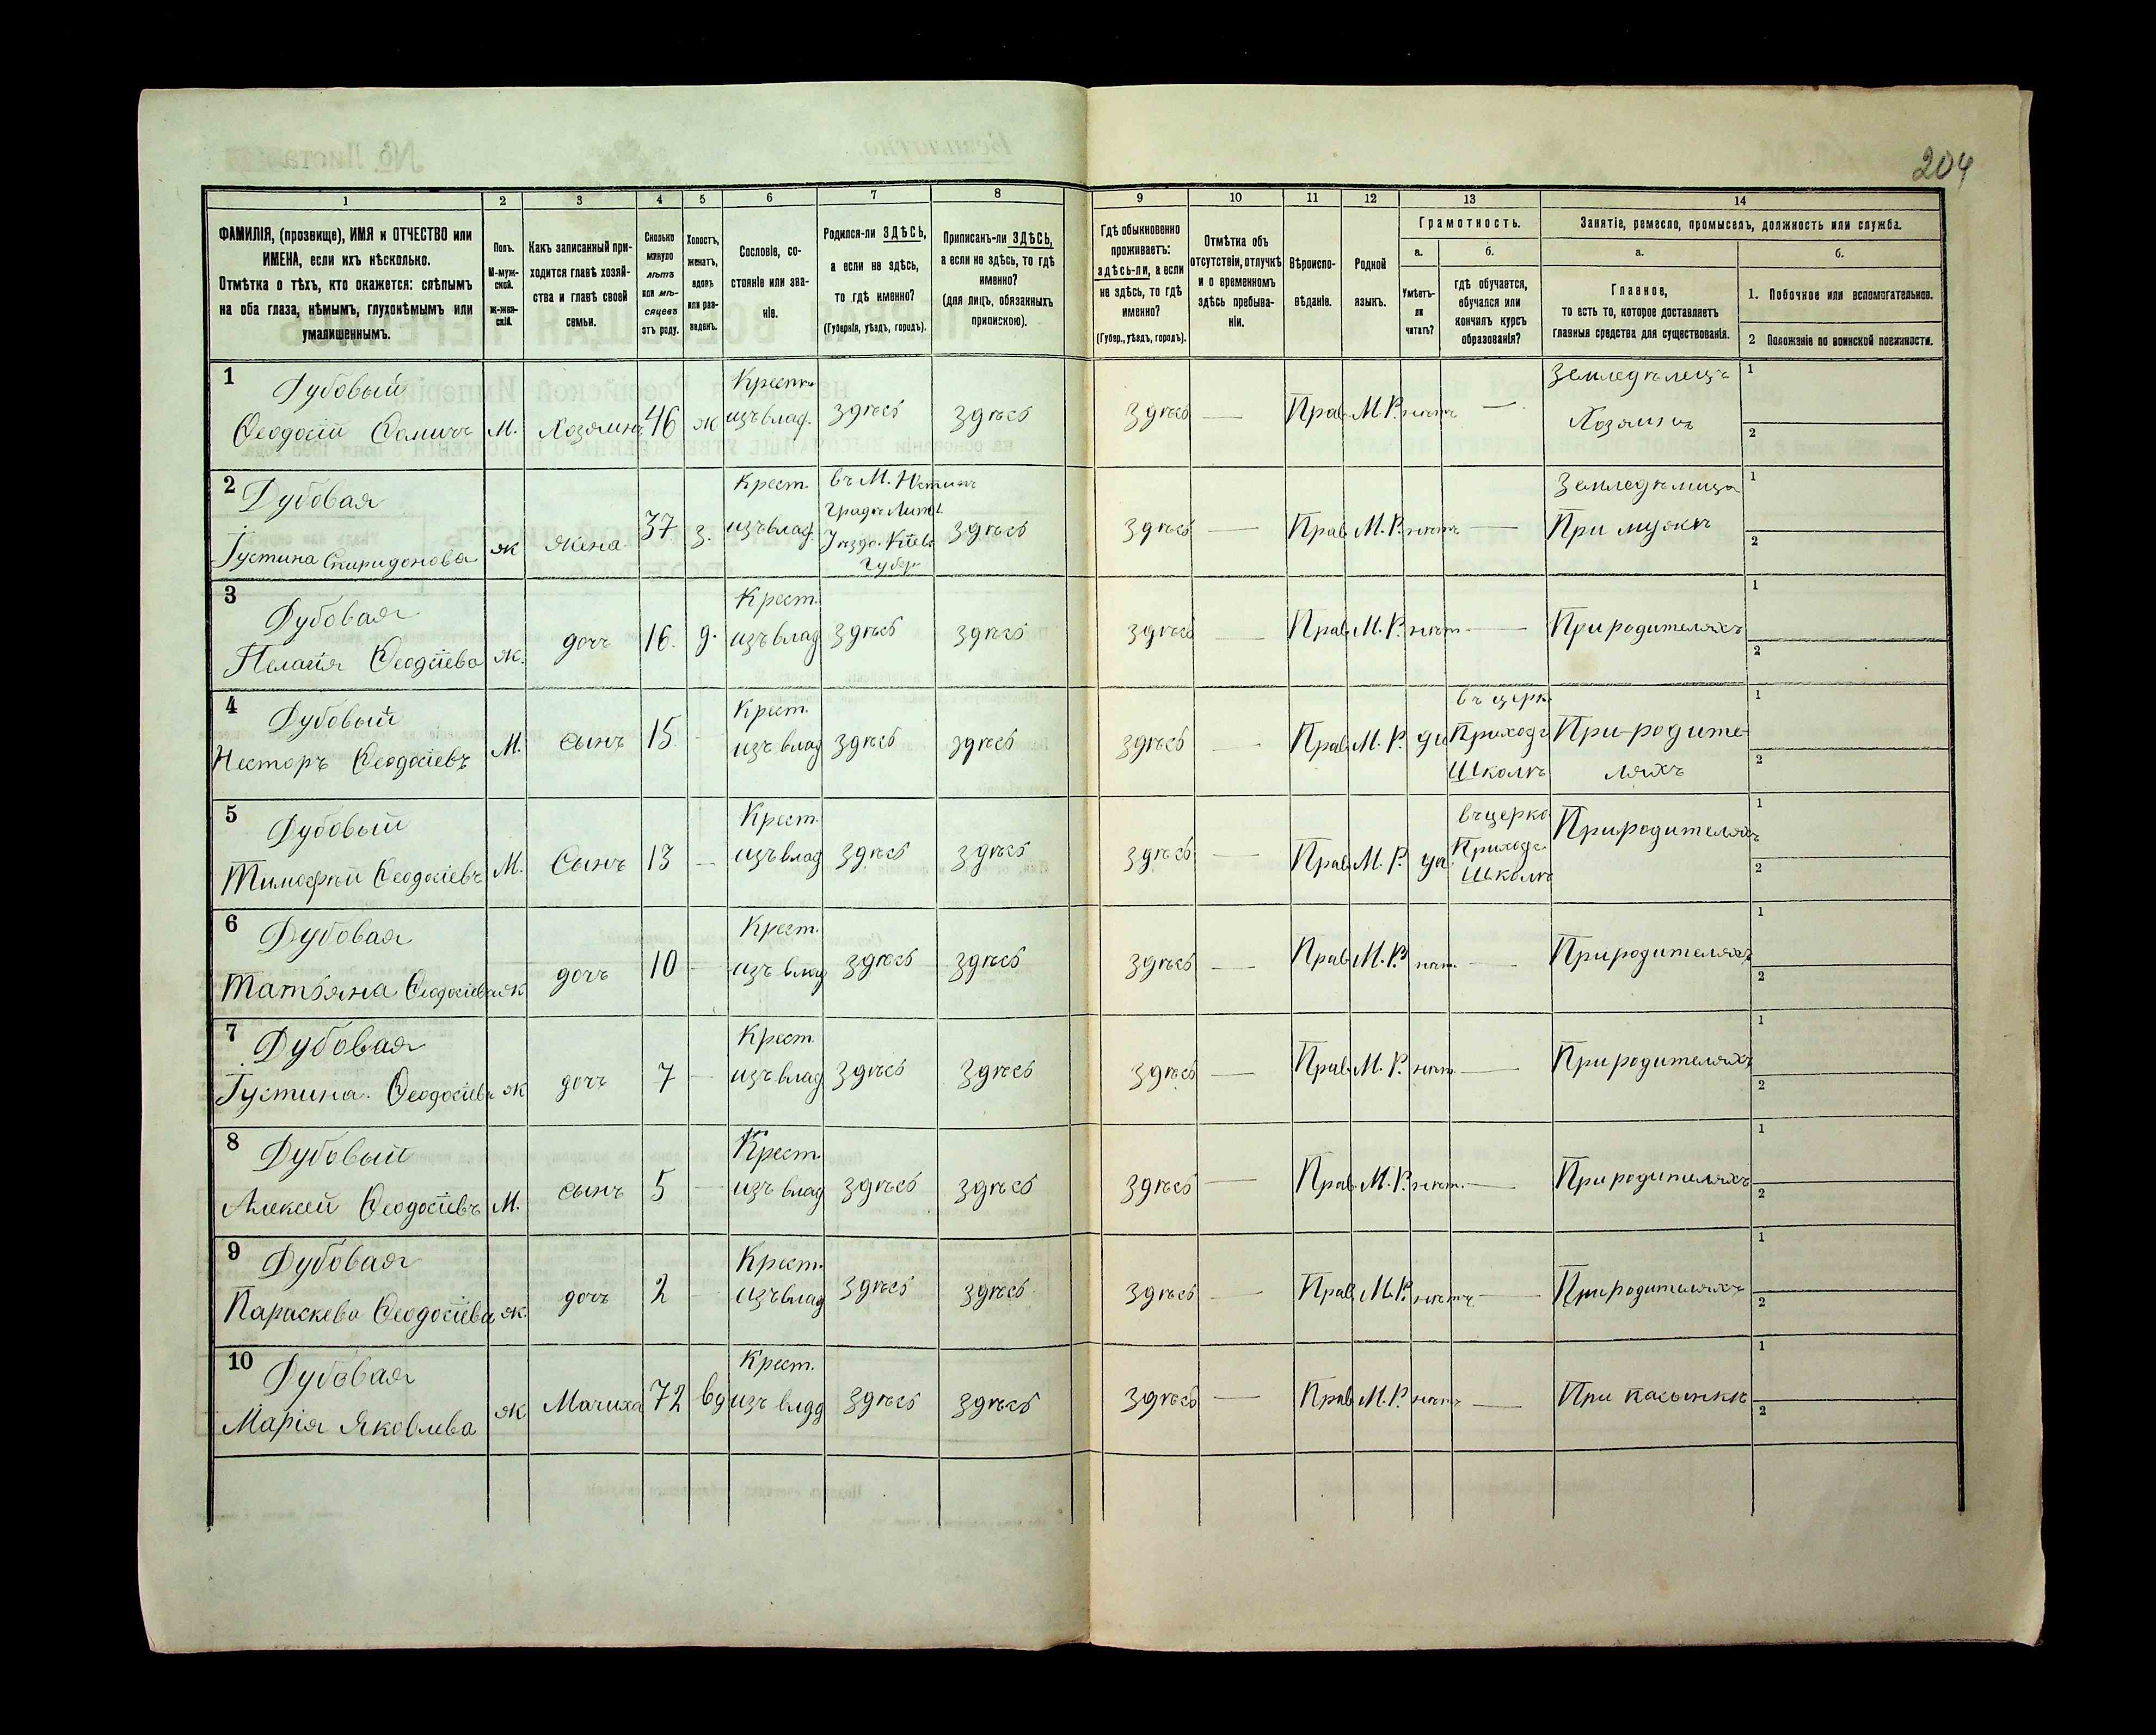 204
1 2 3 4 5 6 7 8 9 10 11 12 13 14
ФАМИЛІЯ, (прозвище), ИМЯ и ОТЧЕСТВО или ИМЕНА, если ихъ нѣсколько.
Отмѣтка о тѣхъ, кто окажется: слѣпымъ на оба глаза, нѣмымъ, глухонѣмымъ или умалишеннымъ.
Полъ. М-мужской. Ж-женскій.
Какъ записанный приходится главѣ хозяйства и главѣ своей семьи.
Сколько минуло лѣтъ или мѣсяцевъ отъ роду.
Холостъ, женатъ, вдовъ или разведенъ.
Сословіе, состояніе или званіе.
Родился-ли ЗДѢСЬ, а если не здѣсь, то гдѣ именно? (Губернія, уѣздъ, городъ).
Приписанъ-ли ЗДѢСЬ, а если не здѣсь, то гдѣ именно? (для лицъ, обязанныхъ припискою).
Гдѣ обыкновенно проживаетъ: здѣсь-ли, а если не здѣсь, то гдѣ именно? (Губер., уѣздъ, городъ).
Отмѣтка объ отсутствіи, отлучкѣ и о временномъ здѣсь пребываніи.
Вѣроисповѣданіе.
Родной языкъ.
Грамотность.
а. Умѣетъ-ли читать?
б. гдѣ обучается, обучался или кончилъ курсъ образованія?
Занятіе, ремесло, промыселъ, должность или служба.
а. Главное, то есть то, которое доставляетъ главныя средства для существованія.
б.
1. Побочное или вспомогательное.
2 Положеніе по воинской повинности.
1 Дубовый Крест. Земледѣлецъ 1
Ѳеодосій Ѳомичъ М. Хозяинъ 46 ж изъ влад. здѣсь здѣсь здѣсь — Прав. М. Р. нѣтъ — Хозяинъ 2
2 Дубовая Крест. въ М. Земледѣлица 1
Іустина Спиридонова ж жена 37 з. изъ влад. Уѣзд. Кіев. Губер. здѣсь здѣсь — Прав. М. Р. нѣтъ — При мужѣ 2
3 Дубовая Крест. 1
Пелагія Ѳеодсіева ж. дочь 16. д. изъ влад здѣсь здѣсь здѣсь — Прав. М. Р. нѣтъ — При родителяхъ 2
4 Дубовый Крест. въ церк. 1
Несторъ Ѳеодосіевъ М. сынъ 15 — изъ влад здѣсь здѣсь здѣсь — Прав. М. Р. да Приход. Школѣ При-родителяхъ 2
5 Дубовый Крест. въ церко. 1
Тимофѣй Ѳеодосіевъ М. Сынъ 13 — изъ влад здѣсь здѣсь здѣсь — Прав. М. Р. да Приход. Школѣ При родителяхъ 2
6 Дубовая Крест. 1
Татьяна Ѳеодосіева ж дочь 10 — изъ влад здѣсь здѣсь здѣсь — Прав. М. Р. нѣт. — При родителяхъ 2
7 Дубовая Крест. 1
Іустина. Ѳеодосіева ж дочь 7 — изъ влад здѣсь здѣсь здѣсь — Прав. М. Р. нѣт. — При родителяхъ 2
8 Дубовый Крест. 1
Алексей Ѳеодосіевъ М. сынъ 5 — изъ влад здѣсь здѣсь здѣсь — Прав. М. Р. нѣт. — При родителяхъ 2
9 Дубовая Крест. 1
Параскева Ѳеодосіева ж. дочь 2 — изъ влад здѣсь здѣсь здѣсь — Прав. М. Р. нѣтъ — При родителяхъ 2
10 Дубовая Крест. 1
Марія Яковлева ж Мачиха 72 вд изъ влад здѣсь здѣсь здѣсь — Прав М. Р. нѣтъ — При пасынкѣ 2